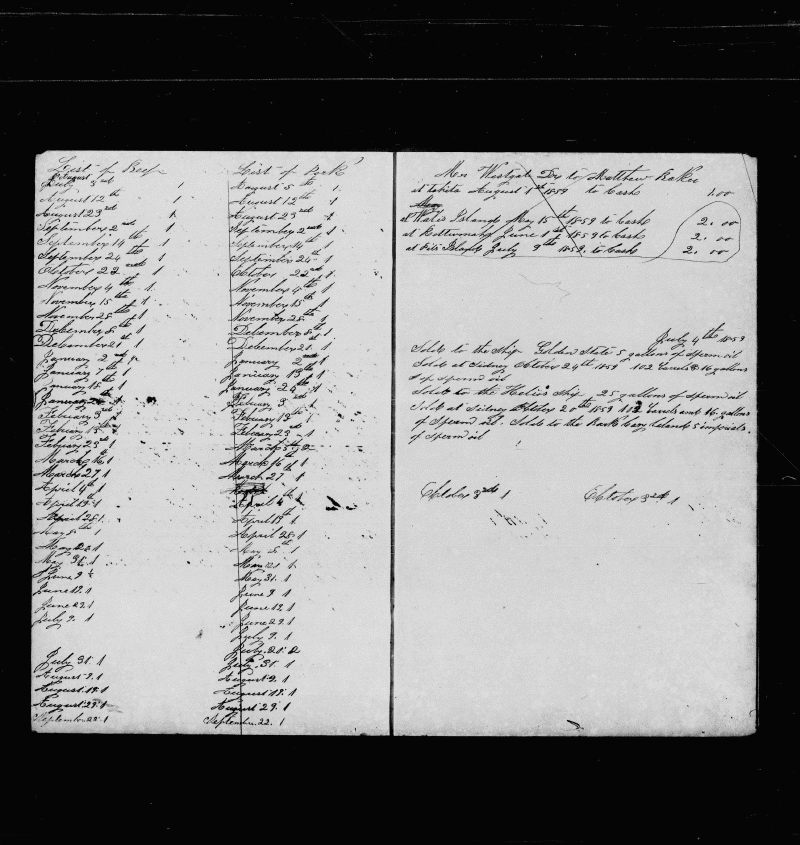 List of Beef
August
July 3rd 1
August 12th 1
August 23rd 1
September 2nd 1
September 14th 1
September 24th 1
October 22nd 1
November 4th 1
November 15th 1
November 25th 1
December 8th 1
December 21 1
January 2nd
January 7th 1
January 15th 1
January
February 3rd 1
February 15th
February 23rd 1
March 16 1
March 27 1
April 4th
April 19th 1
April 28 1
May 8th 1
May 20 1
May 31 1
June 9 1
June 19. 1
June 29. 1
July 9. 1
July 31. 1
August 9. 1
August 19. 1
August 29. 1
September. 22. 1
List of Pork
August 5th 1.
August 12th 1
August 23rd 1
September 2nd 1
September 14th 1
September 24th 1
October 22nd 1
November 4th 1
November 15th 1
November 25th 1
December 8th 1
December 21 1
January 2nd 1
January 13th 1
January 24th 1
February 3 1
February 13th
February 23rd 1
March 5th
March 16th 1
March 27 1
April 4th 1
April 19th 1
April 28. 1
May 8th 1
May 20 1.
May 31. 1
June 9 1
June 19. 1
June 29. 1
July 9. 1
July. 21. 2
July. 31. 1
August. 9. 1
August. 19. 1
August 29. 1
September. 22. 1
Mr Westgat Dr to Matthew Baker
at August 1st 1859 to Cash 1.00
May
at Island May 15th 1859 to Cash 2.00
at Rottumah June 1st 1859 to Cash 2.00
at Islands July 9th 1859. to Cash 2.00
July 4th 1859
Sold to the Ship Golden State 5 gallons of Sperm oil
Sold at Sidney October 24th 1859 102 barrels 16 gallons
of Sperm oil
Sold to the Helios Ship 25 gallons of Sperm oil
Sold at Sidney October 20th 1859 112 barrels and 16 gallons
of Sperm oil. Sold to the Bark Island 5 imperials
of Sperm oil
October 3rd 1 October 3rd 1